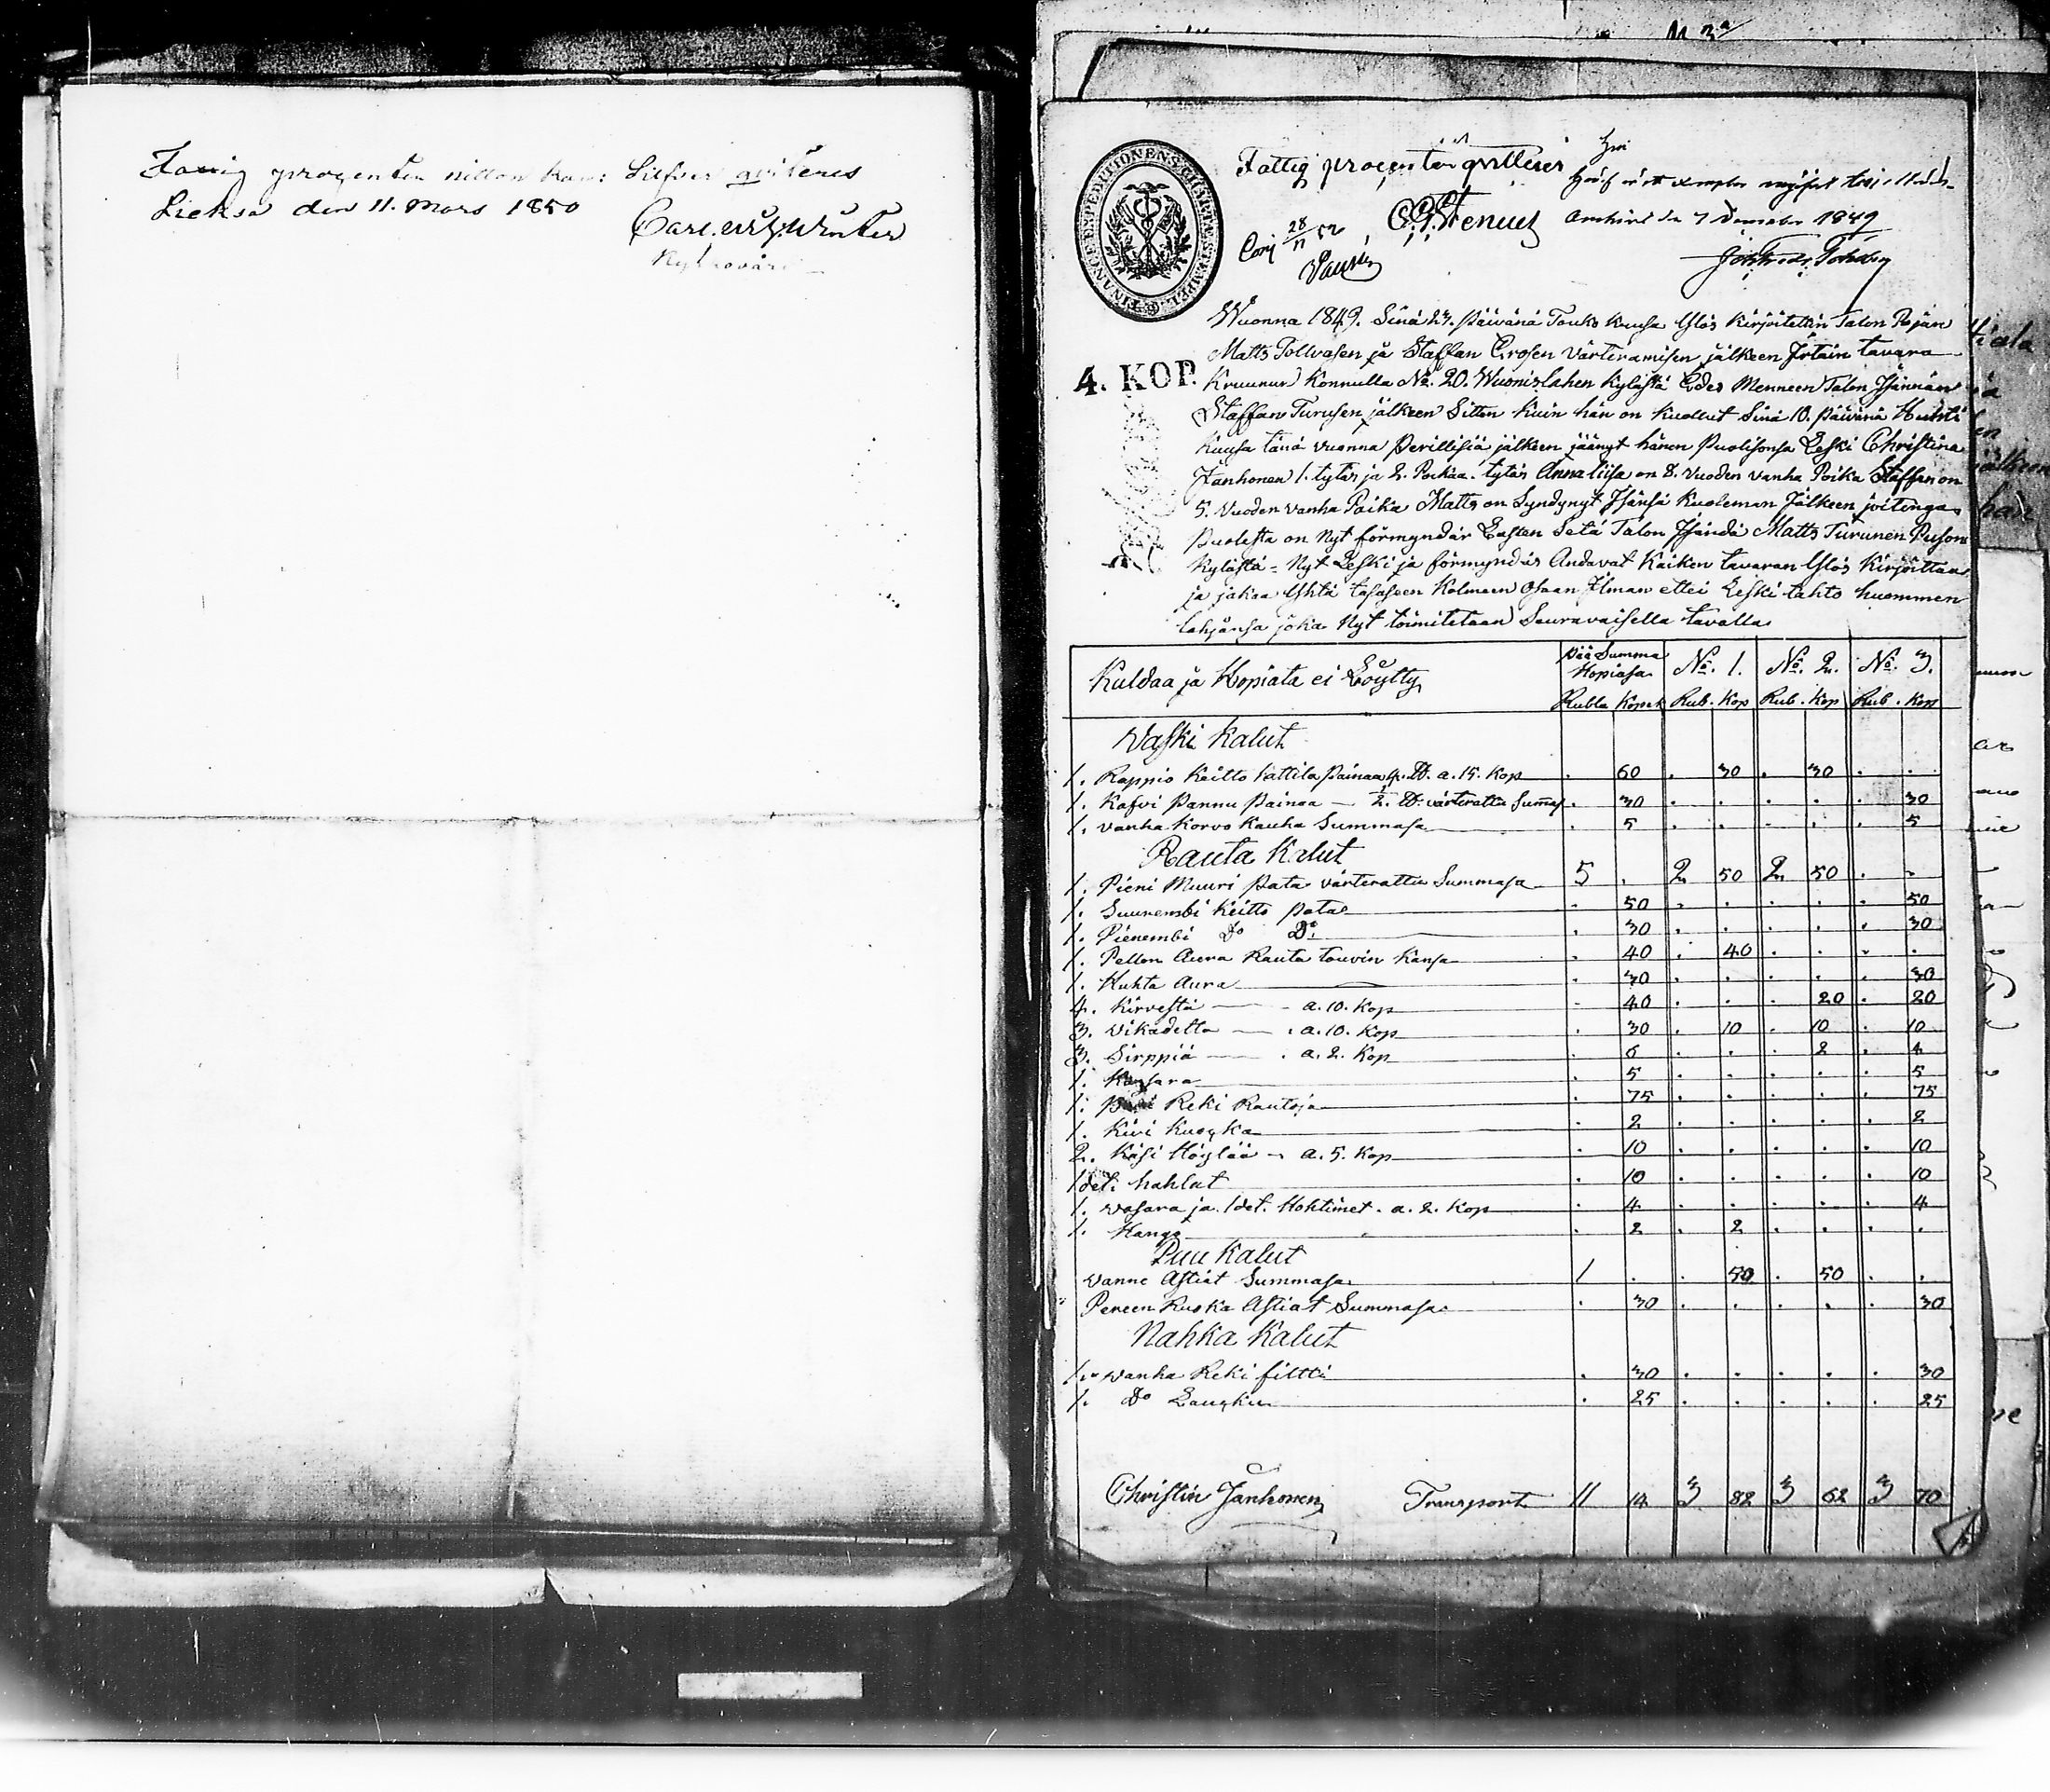 Fattig procenten nillon kop: Silfver qviteres
Lieksa den 11. Mars 1850
Carl. Winter
Fattig procenten qvitteras
C. G. Stenius
Archivet den 7 December 1849
Corj 28/11 52
FINANCE EXPEDITIONENS CHARTÆ STÆMPEL
4. KOP.
Wuonna 1849. Sinä 23. päivänä Touko kuusa Ylös kirjoitettin Talon Pojan
Matts Tolvasen ja Staffan Erosen värteramisen jälkeen Jrtain tavara
Kruunun Konnulla No. 20. Wuonislahen kylästä Edes Menneen Talon Jsännän
Staffan Turusen jälkeen Sitten kuin hän on kuollut Sinä 10. päivänä Huhti
kuusa tänä vuonna Perillisiä jälkeen jäänyt hänen Puolisonsa Leski Christina
Janhonen 1. tytär ja 2. Poikaa. tytär Annaliisa on 8. vuoden vanha Poika Staffan on
5. Vuoden vanha Poika Matts on Syndynyt Jsänsä kuoleman Jälkeen joitenga
puolesta on Nyt förmyndär Lasten Setä Talon Jsändä Matts Turunen Puson
kylästä - Nyt Leski ja förmyndär Andavat kaiken tavaran Ylös kirjoittaa
ja jakaa Yhtä tasaseen kolmeen osaan Jlman ettei Leski tahto huommen
lahjansa joka Nyt toimitetaan Seuravaisella tavalla
Kuldaa ja Hopiata ei Löytty
pää Summa Hopiasa No. 1. No. 2. No. 3.
Rubla kopek Rub. kop Rub. kop Rub. kop
Vaski kalut
1. Rappio keitto kattila painaa 4. ℔. a. 15. kop . 60 . 30 . 30 . .
1. kafvi pannu painaa — 1/2. ℔. värterattu Summas . 30 . . . . . 30
1. vanha korvo kauha Summasa . 5 . . . . . 5
Rauta kalut
1. Pieni Muuri pata värterattu Summasa 5 . 2 50 2 50 . .
1. Suurembi keitto pata . 50 . . . . . 50
1. Pienembi Do Do . 30 . . . . . 30
1. Pellon Aura Rauta touvin kansa . 40 . 40 . . . .
1. Kuhta Aura . 30 . . . . . 30
4. kirvestä — a. 10. kop . 40 . . . 20 . 20
3. Vikadetta — a. 10. kop . 30 . 10 . 10 . 10
3. Sirppiä — a. 2. kop . 6 . . . 2 . 4
1. . 5 . . . . . 5
1. Reki Rautoja . 75 . . . . . 75
1. kivi kuokka . 2 . . . . . 2
2. käsi Höylää — a. 5. kop . 10 . . . . . 10
1 det: . 10 . . . . . 10
1. vasara ja 1 det. Hohtimet. a. 2. kop . 4 . . . . . 4
1. Hango . 2 . 2 . . . .
Puu kalut
Vanne Astiat Summasa 1 . . 50 . 50 . .
Pereen Ruoka Astiat Summasa . 30 . . . . . 30
Nahka kalut
1. vanha Reki filtti . 30 . . . . . 30
1. Do Laugku . 25 . . . . . 25
Christin Janhonen Transport 11 14 3 82 3 62 3 70